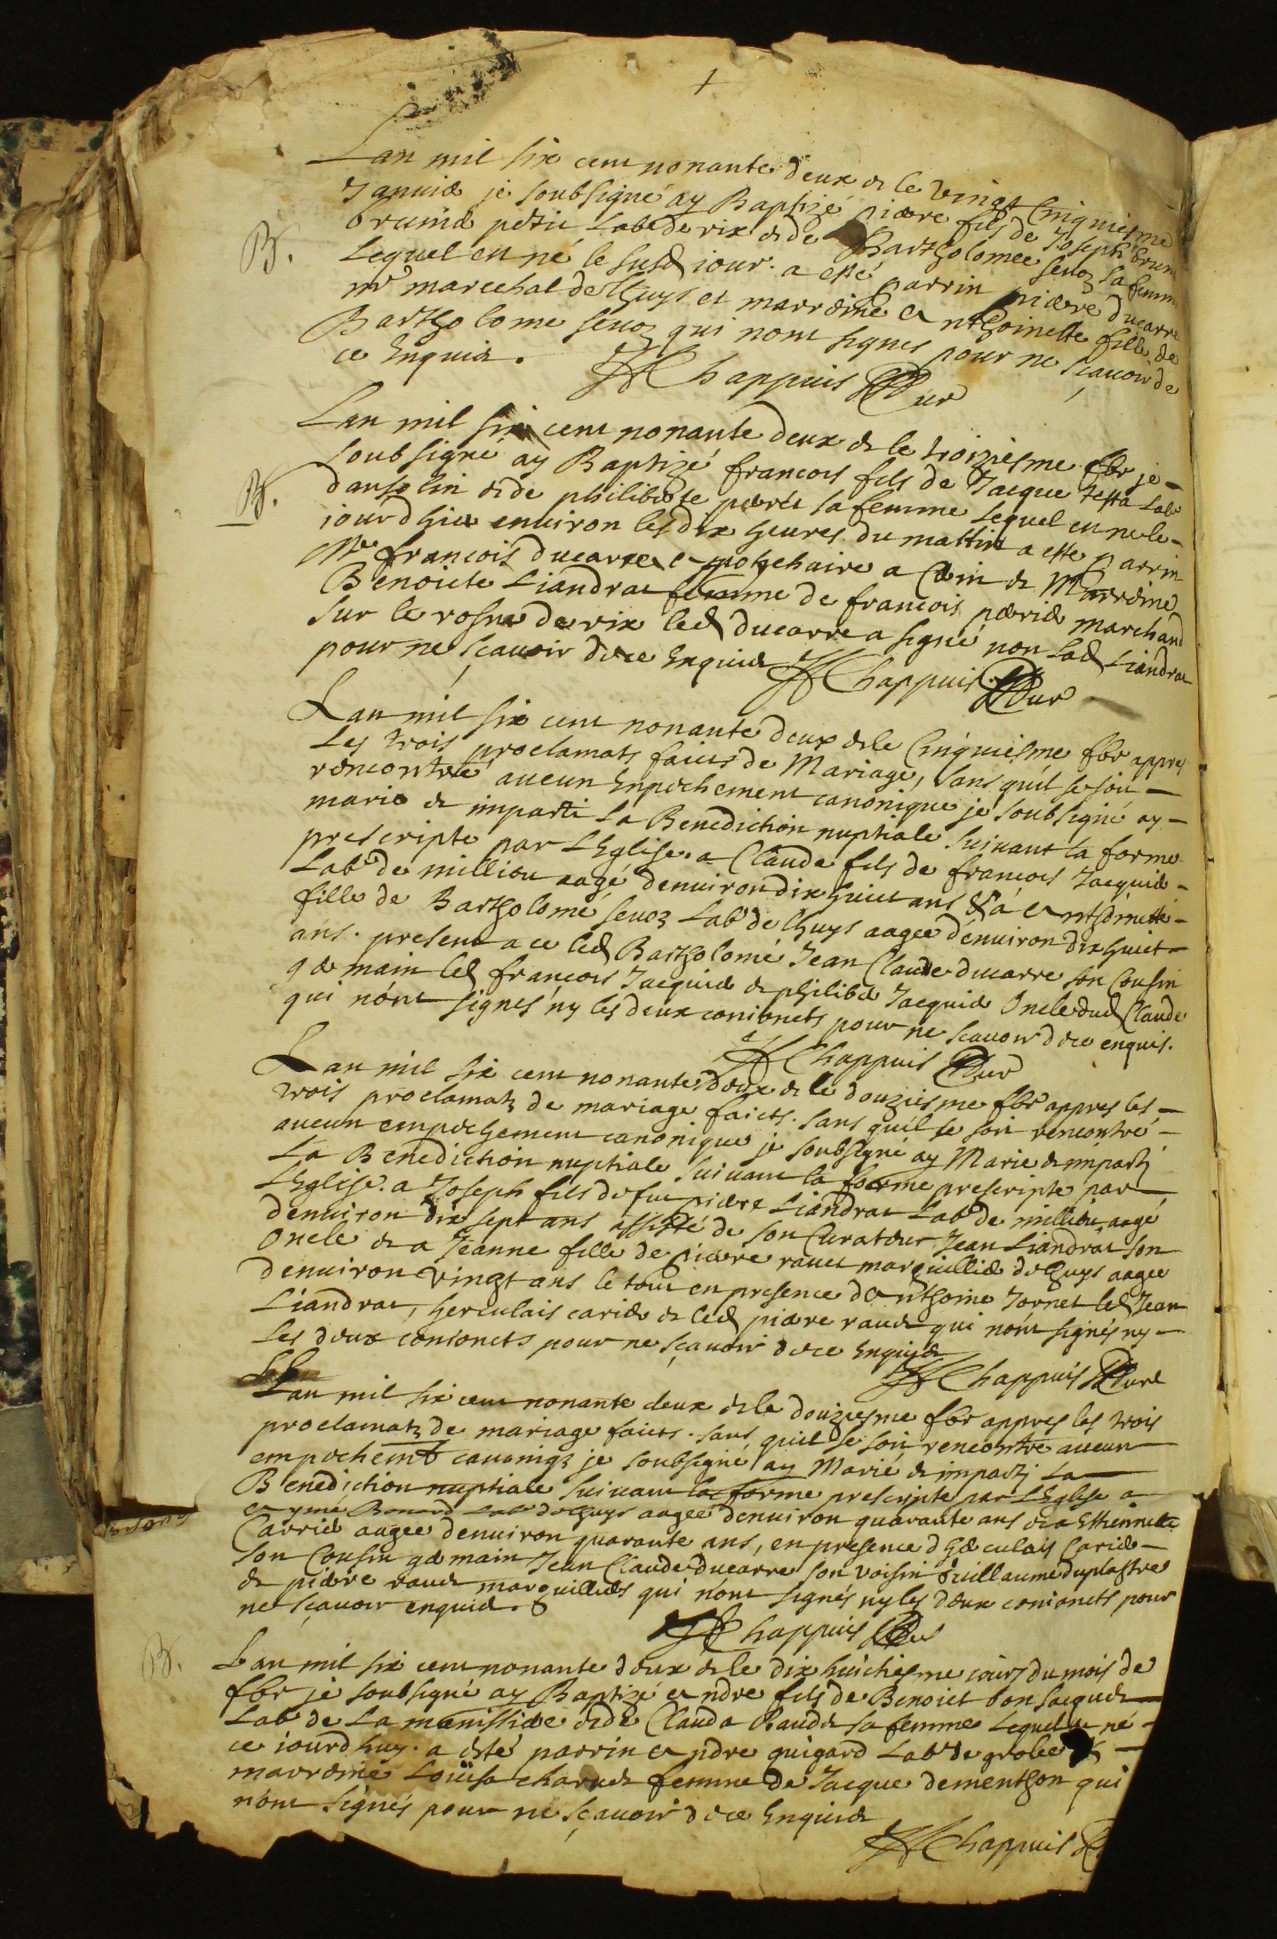 Lan mil six cent nonante deux & le vingt cinquiesme
Januier je soubsigné ay Baptizé pierre fils de Joseph brun
petit Lab de rix & de Bartholomee seuoz sa femme
Lequel est né le susd iour. a esté parrin pierre ducarre
mr marechal de lhuys et marreine Anthoinette fille de
Bartholome seuoz qui nont signes pour ne scauoir de
ce Enquis. Chappuis Cur
B.
Lan mil six cent nonante deux & le troiziesme fbr je
soubsigné ay Baptizé francois fils de Jacque Lab
& de philiberte sa femme lequel est ne le
iourdhier enuiron les dix heures du mattin a esté parrin
Me francois ducarre apotchaire a & Marreine
Benoite Liandrat femme de francois marchand
sur le rosne de rix led ducarre a signé non lad Liandrat
pour ne scauoir de ce Enquise Chappuis Cur
B.
Lan mil six cent nonante deux & le Cinquiesme fbr appres
Les trois proclamats faicts de Mariage, sans quil se soit
rencontré aucun Enpechement canonique je soubsigné ay
marié & imparti La Benediction nuptiale suiuant la forme
prescripte par LEglise. a Claude fils de francois Jacquier
Lab de millieu aagé denuiron dix huict ans & a Anthoinette
fille de Bartholomé seuoz Lab de lhuys aagee denuiron dix huict
ans. present a ce led Bartholomé Jean Claude ducarre son Cousin
germain led francois Jacquier & philiber Jacquier Oncle dud Claude
qui nont signes ny les deux conioncts pour ne scauoir de ce enquis.
Chappuis Cur
Lan mil six cent nonante deux & le douziesme fbr appres les
trois proclamatz de mariage faicts. sans quil se soit rencontré
aucun empechement canonique je soubsigné ay Marie & imparty
La Benediction nuptiale suiuant la forme prescripte par
LEglise. a Joseph fils de fut pierre Liandrat Lab de millieu aagé
denuiron dix sept ans assisté de son Curateur Jean Liandrat son
Oncle & a Jeanne fille de pierre rauet marguillier de lhuys aagee
denuiron vingt ans le tout en presence dAnthoine Jornet led Jean
Liandrat, herculais carier & led pierre rauet qui nont signés ny
Les deux conioncts pour ne scauoir de ce Enquis
Chappuis Curé
Lan mil six cent nonante deux & le douziesme fbr appres les trois
proclamatz de mariage faicts. sans quil se soit rencontre aucun
empechemt canoniq je soubsigné ay Marié & imparty La
Benediction nuptiale suiuant la forme prescripte par LEglise a
Lab de lhuys aagée denuiron quarante ans & a Estiennette
Carrier aagee denuiron quarante ans, en presence dherculais Carier
son Cousin germain Jean Claude ducarre son voisin Guillaume duplastre
& pierre rauet marguilliers qui nont signés ny les deux conioncts pour
ne scauoir enquis. Chappuis Cur
B.
Lan mil six cent nonante deux & le dix huictiesme iour du mois de
fbr je soubsigné ay Baptizé Andre fils de Benoict
Lab de La & de Clauda sa femme Lequel est né
ce iourdhuy. a esté parrin Andre guigard Lab de grolee &
marreine Loüise femme de Jacque dementhon qui
nont signés pour ne scauoir de ce Enquis
Chappuis